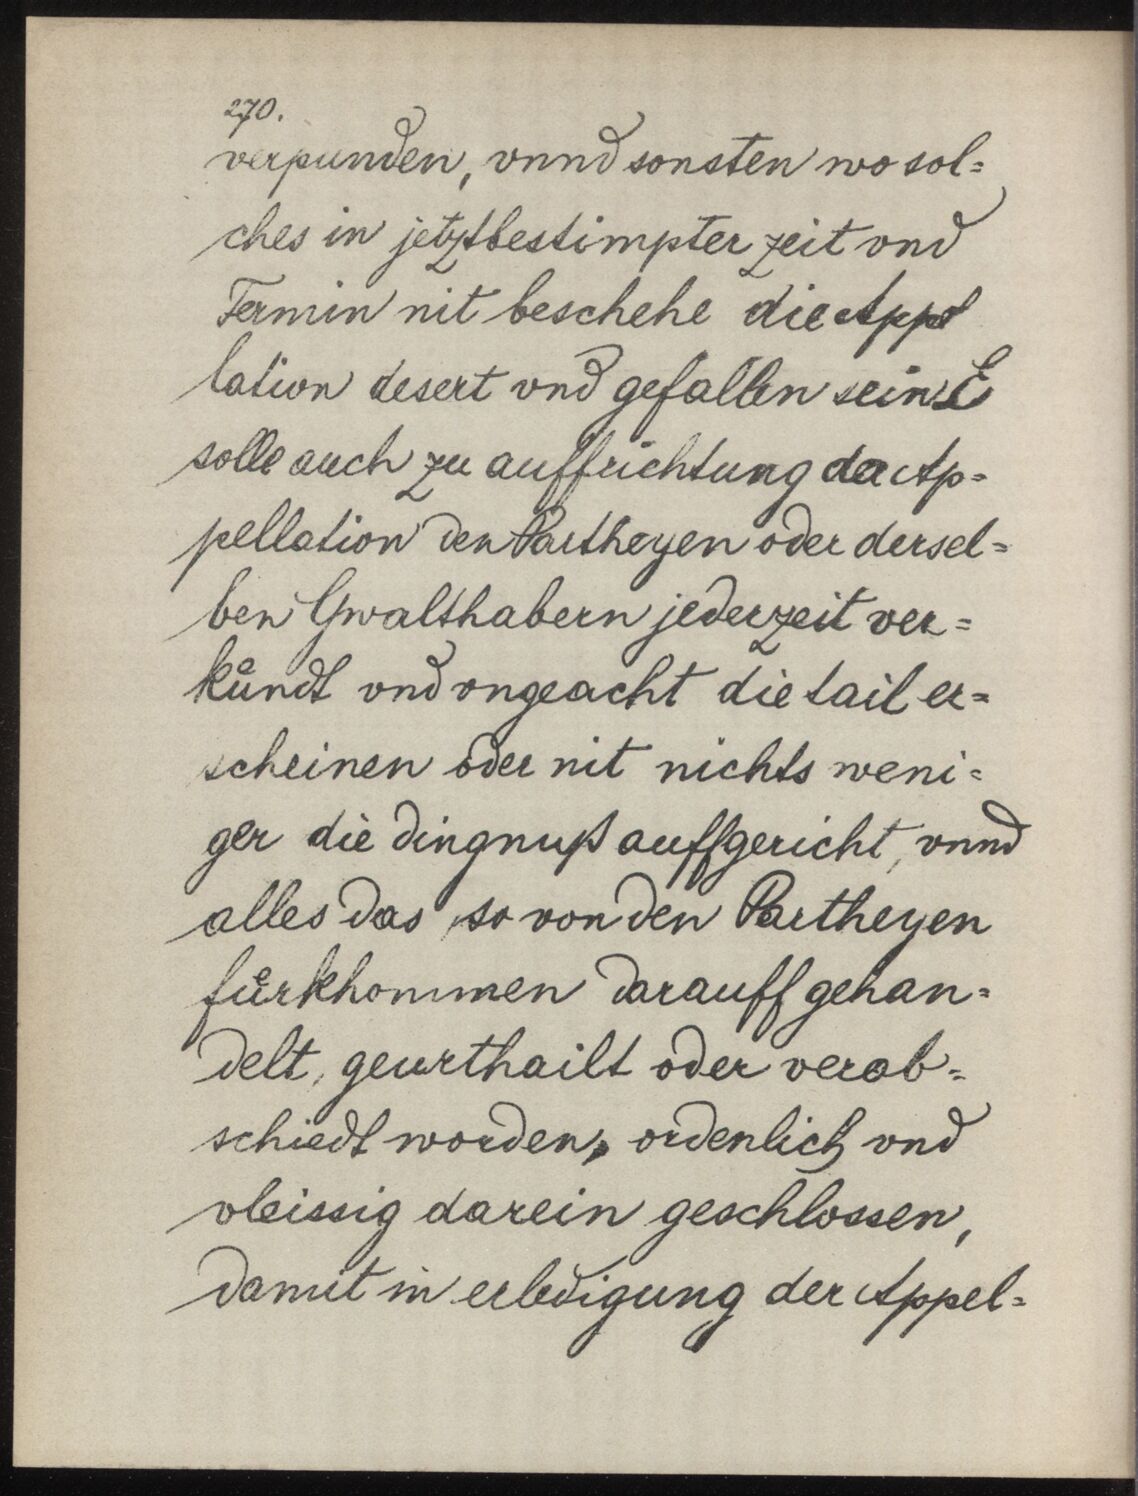 270.
verpunden, vnnd sonsten wo sol=
ches in jetztbestimpter zeit vnd
Termin nit beschehe die Appel
lation desert vnd gefallen sein Es
solle auch zu auffrichtung der Ap=
pellation den Partheyen oder dersel=
ben Gwalthabern jederzeit ver=
kůndt vnd vngeacht die tail er=
scheinen oder nit nichts weni=
ger die dingnuß auffgericht, vnnd
alles das, so von den Partheyen
fůrkhommen darauff gehan=
delt, geurthailt oder verab=
schiedt worden, ordenlich vnd
vleissig darein geschlossen,
damit in erledigung der Appel=